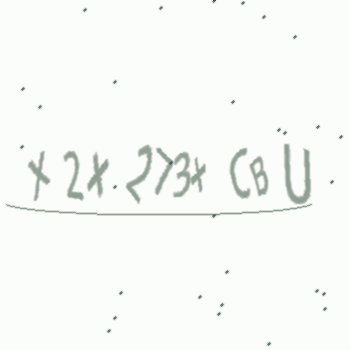 x2x 2>3x CBU